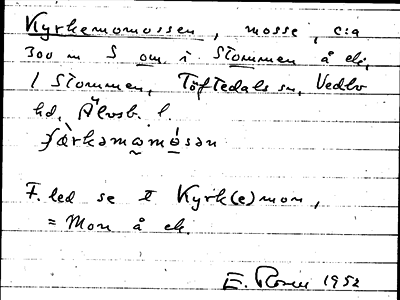 Kyrkemomossen, mosse, c:a
300 m S om i Stommen å ek.
1 Stommen, Töftedals sn, Vedbo
hd, Älvsb. l.
F. led se t Kyrk(e)mon,
= Mon å ek.
E. Rosen 1952